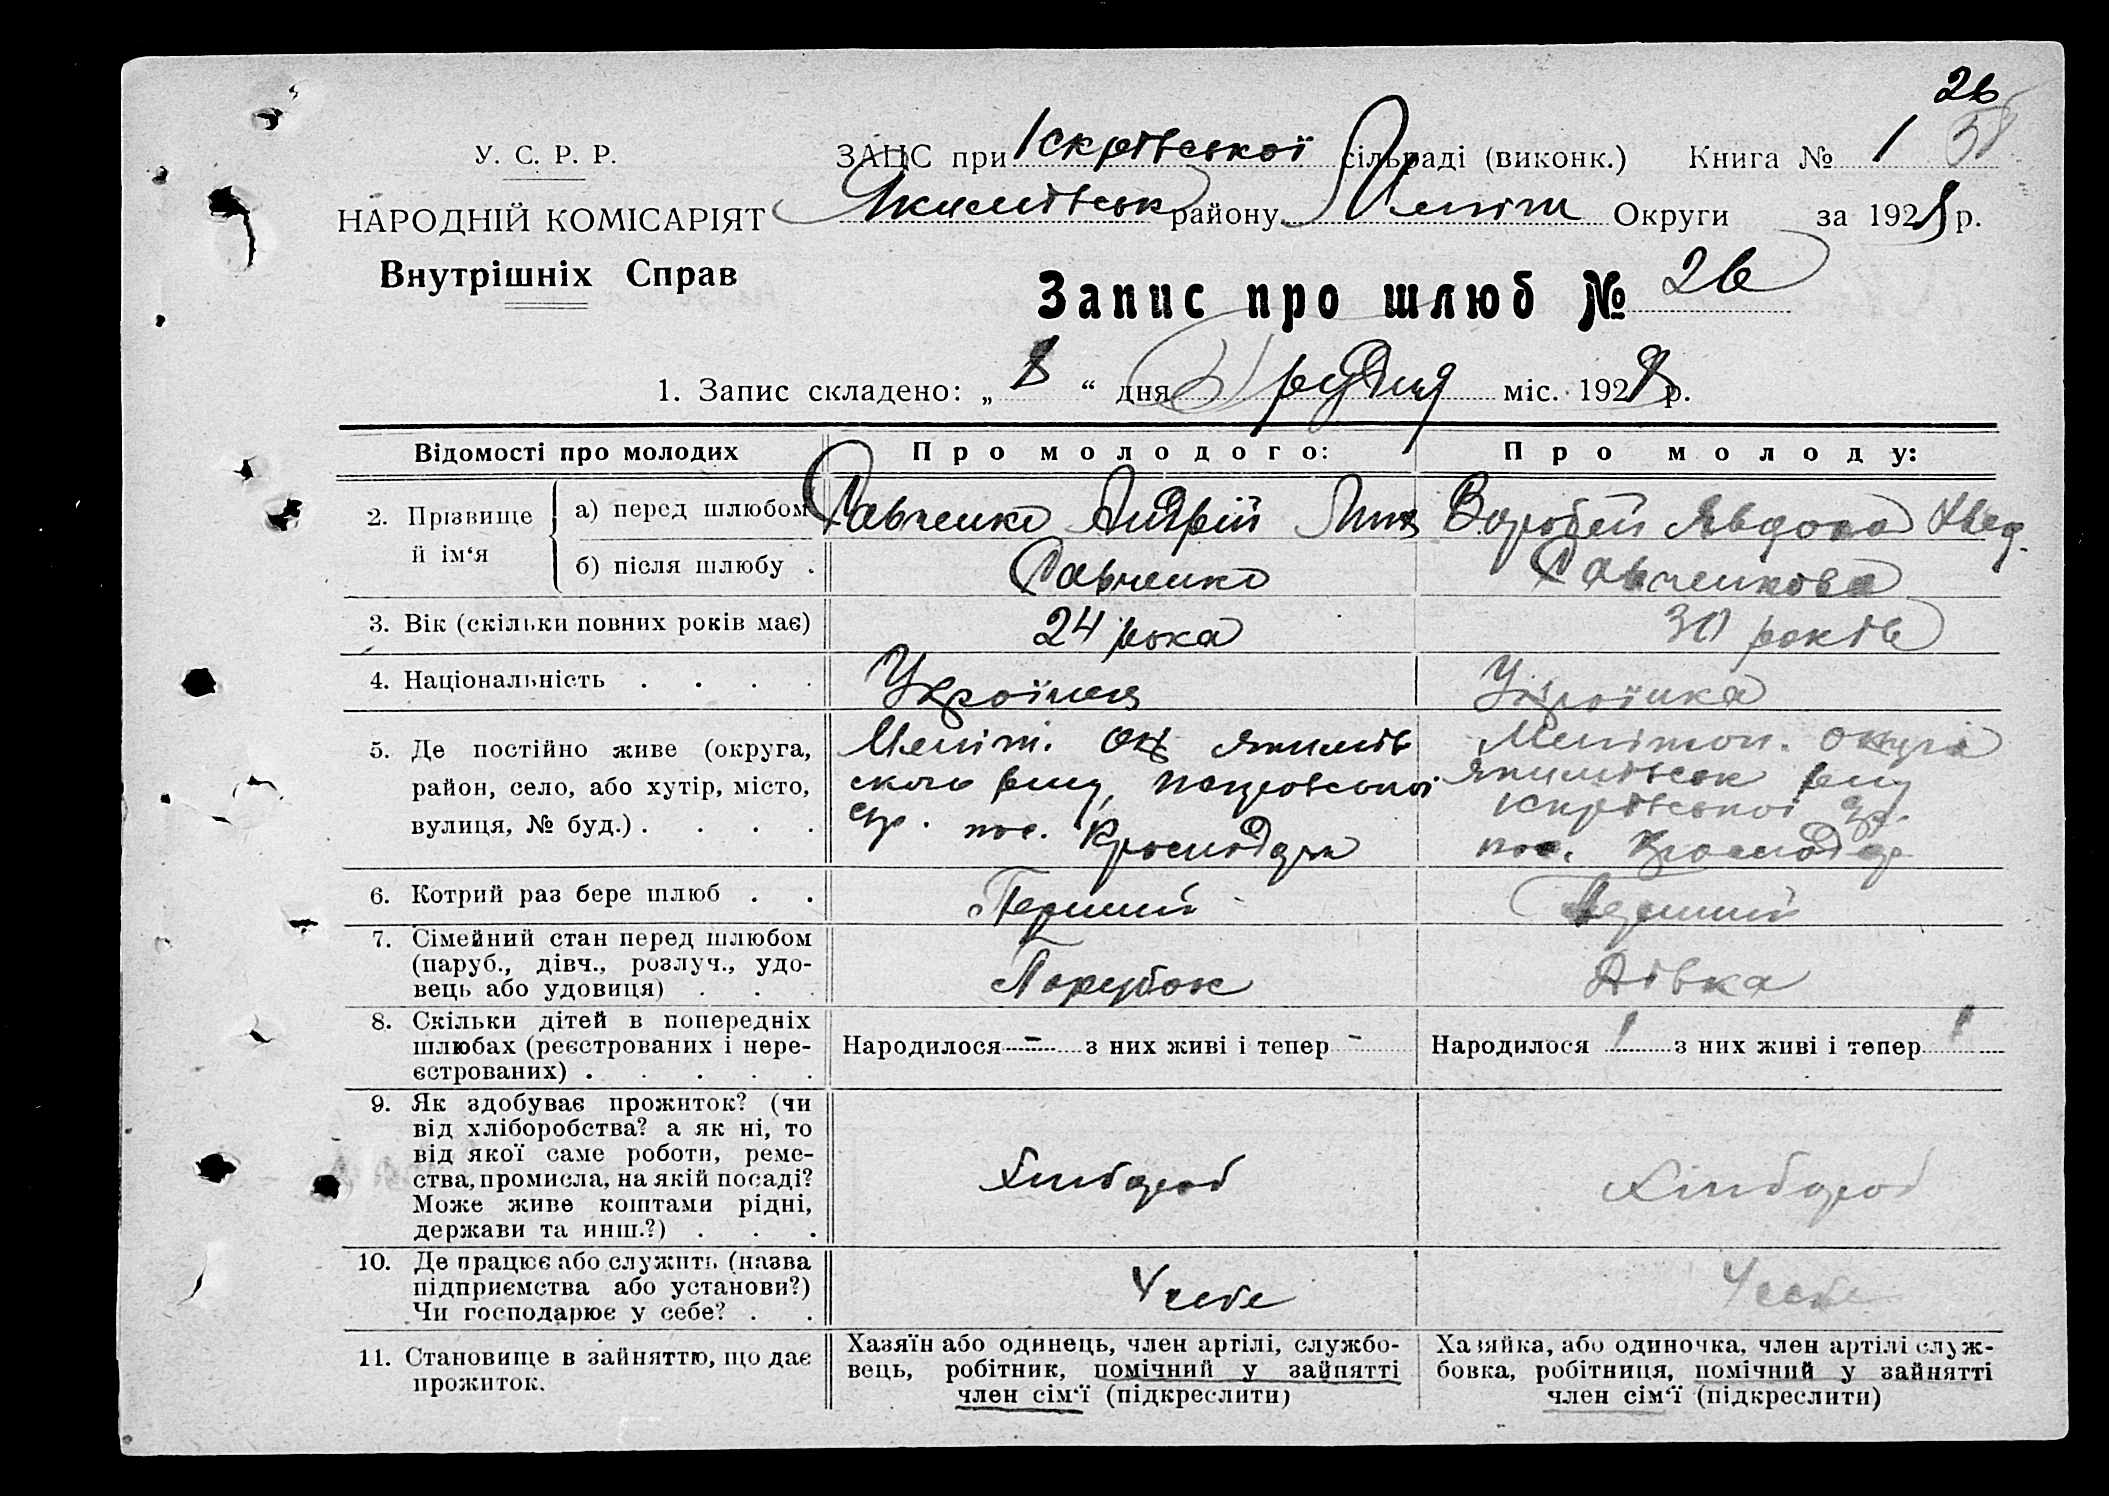 26
У. С. Р. Р.
ЗАЦС при Іскрівської сільраді (виконк.) Книга № 1
НАРОДНІЙ КОМІСАРІЯТ
Якимівськ району Меліт Округи за 1928 р.
Внутрішніх Справ
Запис про шлюб № 26
1. Запис складено: „ 8 “ дня Грудня міс. 1928 р.
Відомості про молодих
Про молодого:
Про молоду:
2. Прізвище й ім‘я
а) перед шлюбом
Савченко Андрій
Воробей Явдоха
б) після шлюбу .
Савченко
Савченкова
3. Вік (скільки повних років має)
24 рока
30 років
4. Національність . . . .
Українец
Українка
5. Де постійно живе (округа,
район, село, або хутір, місто,
вулиця, № буд.) . . . .
Меліт. Окр Якимів
ского
пос. Краснодар
Мелітоп. округи
Якимівськ
Іскрівської
пос. Краснодар
6. Котрий раз бере шлюб . .
Перший
Перший
7. Сімейний стан перед шлюбом
(паруб., дівч., розлуч., удо-
вець або удовиця) . . .
Парубок
Дівка
8. Скільки дітей в попередніх
шлюбах (реєстрованих і нере-
єстрованих) . . . . .
Народилося - з них живі і тепер -
Народилося 1 з них живі і тепер 1
9. Як здобуває прожиток? (чи
від хліборобства? а як ні, то
від якої саме роботи, реме-
ства, промисла, на якій посаді?
Може живе коштами рідні,
держави та инш.?) . . .
Хлібороб
Хлібороб
10. Де працює або служить (назва
підприємства або установи?)
Чи господарює у себе? . .
У себе
У себе
11. Становище в зайняттю, що дає
прожиток.
Хазяїн або одинець, член артілі, службо-
вець, робітник, помічний у зайнятті
член сім‘ї (підкреслити)
Хазяйка, або одиночка, член артілі служ-
бовка, робітниця, помічний у зайнятті
член сім‘ї (підкреслити)